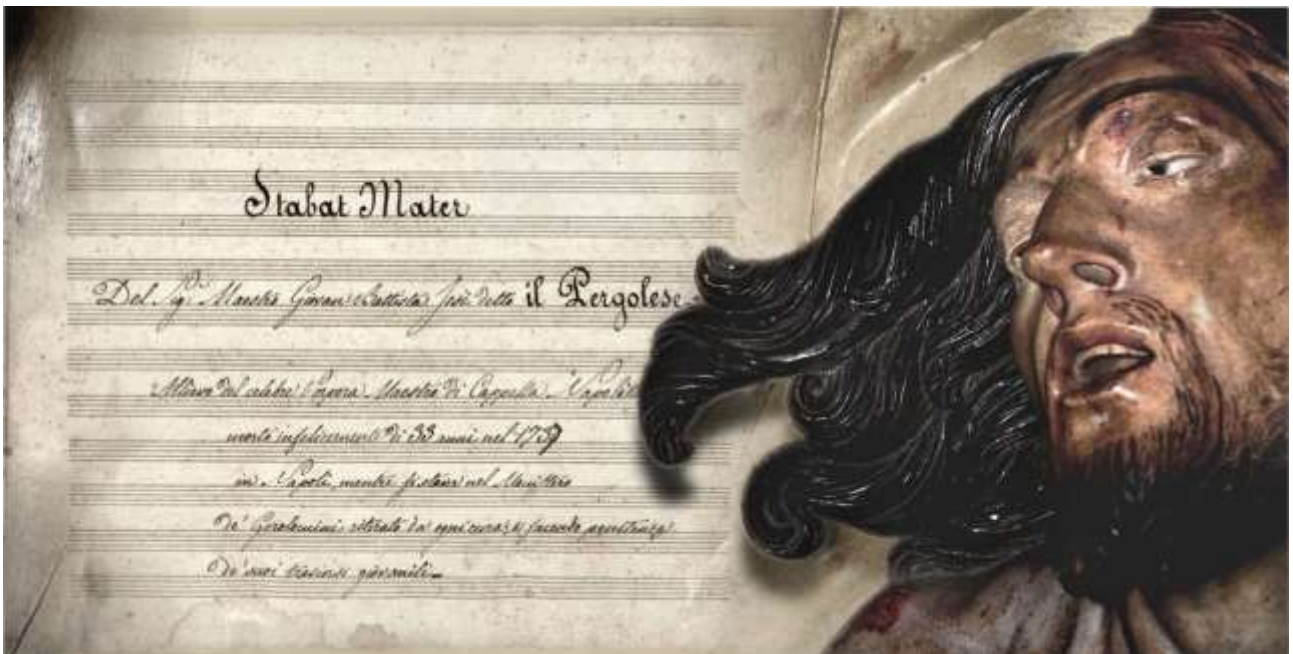 Stabat Mater
Del Sig.r Maestro Giovan Battista Jesi detto il Pergolese
Allievo del celebre Porpora Maestro di Cappella
morto infelicemente di 33 anni nel 1737
in Napoli, mentre si stava nel
De' Gerolomini, ritirato da ogni cura, e facendo penitenza
De' suoi trascorsi giovanili